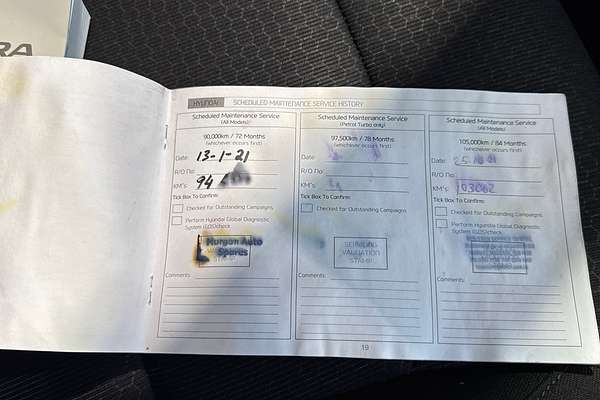 RA
HYUNDAI SCHEDULED MAINTENANCE SERVICE HISTORY
Scheduled Maintenance Service
(All Models)
90,000km / 72 Months
(whichever occurs first)
Date 13-1-21
R/O No
KM's 94
Tick Box To Confirm:
Checked for Outstanding Campaigns
Perform Hyundai Global Diagnostic
System (GDS) check
Murgon Auto
Spares
Comments:
Scheduled Maintenance Service
(Petrol Turbo only)
97,500km / 78 Months
(whichever occurs first)
Date
R/O No
KM's
Tick Box To Confirm:
Checked for Outstanding Campaigns
SERVICING
VALIDATION
STAMP
Comments:
Scheduled Maintenance Service
(All Models)
105,000km / 84 Months
(whichever occurs first)
Date
R/O No
KM's 103062
Tick Box To Confirm:
Checked for Outstanding Campaigns
Perform Hyundai Global Diagnostic
System (GDS) check
Comments:
19